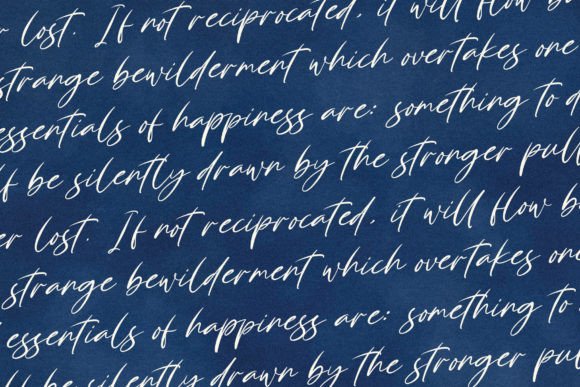 r lost. If not reciprocated, it will flow b
strange bewilderment which overtakes one
essentials of happiness are: something to d
lf be silently drawn by the stronger pull
er lost. If not reciprocated, it will flow b
strange bewilderment which overtakes on
essentials of happiness are: something to
be silently drawn by the stronger pul